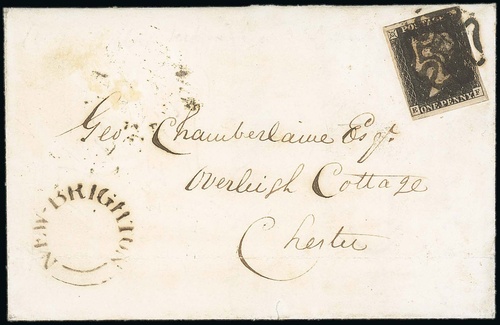 POSTAGE
E F
ONE PENNY
Geo. Chamberlaine Esqr.
Overleigh Cottage
Chester
NEW-BRIGHTON